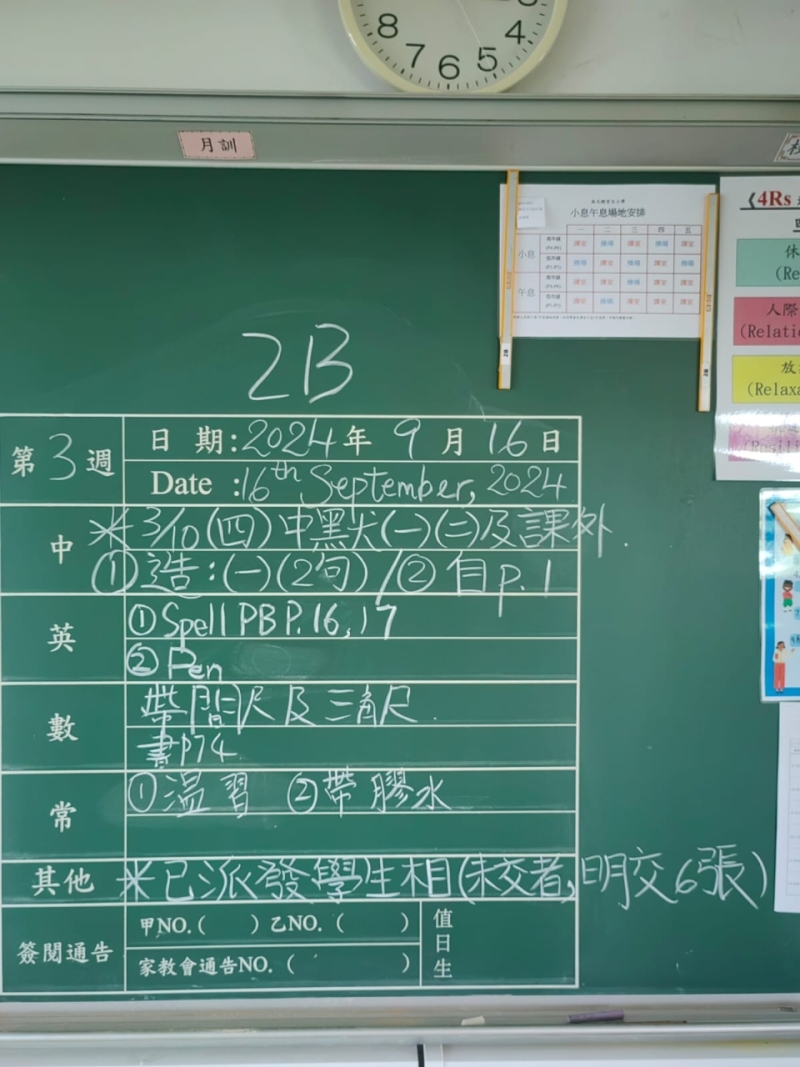 8 7 6 5 4
月訓
小息午息場地安排
一 二 三 四 五
小息
午息
《4Rs
休
(Re
人際
(Relatio
放
(Relaxa
2B
第3週
日期:2024年9月16日
Date :16th September, 2024
中
※3/10(四)中黑犬(一)(二)及課外.
①造:(一)(2句)/② 自p.1
英
①Spell PB P.16,17
② Pen
數
帶間尺及三角尺.
書p74
常
①溫習 ②帶膠水
其他
※已派發學生相(未交者,明交6張)
簽閱通告
甲NO.( )乙NO.( )
家教會通告NO.( )
值日生